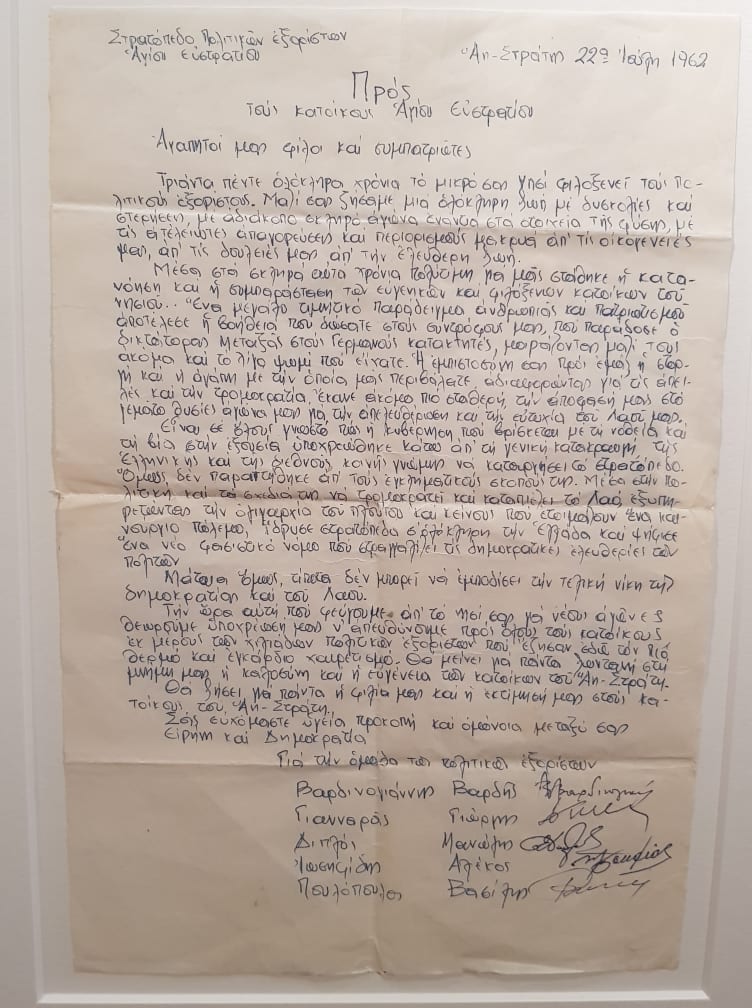 Στρατόπεδο Πολιτικῶν ἐξορίστων
Ἁγίου Εὐστρατίου
Ἁη-Στράτης 22α Ἰούλη 1962
Πρός
τούς κατοίκους Ἁγίου Εὐστρατίου
Ἀγαπητοί μας φίλοι καί συμπατριῶτες
Τριάντα πέντε ὁλόκληρα χρόνια τό μικρό σας νησί φιλοξενεῖ τούς πο-
λιτικούς ἐξορίστους. Μαζί σας ζήσαμε μιά ὁλόκληρη ζωή μέ δυσκολίες καί
στερήσεις, μέ ἀδιάκοπο σκληρό ἀγώνα ἐνάντια στά στοιχεῖα τῆς φύσης, μέ
τίς ἀτέλειωτες ἀπαγορεύσεις καί περιορισμούς μακρυά ἀπ' τίς οἰκογένειές
μας, ἀπ' τίς δουλειές μας ἀπ' τήν ἐλεύθερη ζωή.
Μέσα στά σκληρά αὐτά χρόνια πολύτιμη γιά μᾶς στάθηκε ἡ κατα-
νόηση καί ἡ συμπαράσταση τῶν εὐγενικῶν καί φιλόξενων κατοίκων τοῦ
νησιοῦ.. Ἕνα μεγάλο τιμητικό παράδειγμα ἀνθρωπιᾶς καί πατριωτισμοῦ
ἀποτέλεσε ἡ βοήθεια πού δώσατε στούς συντρόφους μας, πού παράδοσε ὁ
δικτάτορας Μεταξᾶς στούς Γερμανούς κατακτητές, μοιράζοντας μαζί τους
ἀκόμα καί τό λίγο ψωμί πού εἴχατε. Ἡ ἐμπιστοσύνη σας πρός ἐμᾶς ἡ στορ-
γή καί ἡ ἀγάπη μέ τήν ὁποία μᾶς περιβάλατε, ἀδιαφορώντας γιά τίς ἀπει-
λές καί τήν τρομοκρατία, ἔκανε ἀκόμα πιό σταθερή, τήν ἀπόφασή μας στό
γεμάτο θυσίες ἀγώνα μας γιά τήν ἀπελευθέρωση καί τήν εὐτυχία τοῦ Λαοῦ μας.
Εἶναι σέ ὅλους γνωστό πώς ἡ κυβέρνηση πού βρίσκεται μέ τή νοθεία καί
τή βία στήν ἐξουσία ὑποχρεώθηκε κάτω ἀπ' τή γενική κατακραυγή, τῆς
Ἑλληνικῆς καί τῆς διεθνοῦς κοινῆς γνώμης νά καταργήσει τό στρατόπεδο.
Ὅμως, δέν παραιτήθηκε ἀπ' τούς ἐγκληματικούς σκοπούς της. Μέσα στήν πο-
λιτική καί τά σχέδιά της νά τρομοκρατεῖ καί καταπιέζει τό Λαό ἐξυπη-
ρετώντας τήν ὀλιγαρχία τοῦ πλούτου καί κείνους πού ἑτοιμάζουν ἕνα και-
νούργιο πόλεμο, ἵδρυσε στρατόπεδα σ' ὁλόκληρη τήν Ἑλλάδα καί ψήφισε
ἕνα νέο φασιστικό νόμο πού στραγγαλίζει τίς δημοκρατικές ἐλευθερίες τῶν
πολιτῶν
Μάταια ὅμως, τίποτα δέν μπορεῖ νά ἐμποδίσει τήν τελική νίκη τῆς
δημοκρατίας καί τοῦ Λαοῦ.
Τήν ὥρα αὐτή πού φεύγουμε ἀπ' τό νησί σας γιά νέους ἀγῶνες
θεωροῦμε ὑποχρέωσή μας ν' ἀπευθύνουμε πρός ὅλους τούς κατοίκους
ἐκ μέρους τῶν χιλιάδων πολιτικῶν ἐξορίστων πού ἔζησαν ἐδῶ τόν πιό
θερμό καί ἐγκάρδιο χαιρετισμό. Θά μείνει γιά πάντα ζωντανή στή
μνήμη μας ἡ καλοσύνη καί ἡ εὐγένεια τῶν κατοίκων τοῦ Ἁη-Στράτη.
Θά ζήσει γιά πάντα ἡ φιλία μας καί ἡ ἐκτίμησή μας στούς κα-
τοίκους τοῦ Ἁη-Στράτη.
Σᾶς εὐχόμαστε ὑγεία προκοπή καί ὁμόνοια μεταξύ σας
Εἰρήνη καί Δημοκρατία
Γιά τήν ὁμάδα τῶν πολιτικῶν ἐξορίστων
Βαρδινογιάννης Βαρδῆς
Γιανναράς Γιώργης
Διπλός Μανώλης
Ἰωσηφίδης Ἀλέκος
Πουλόπουλος Βασίλης